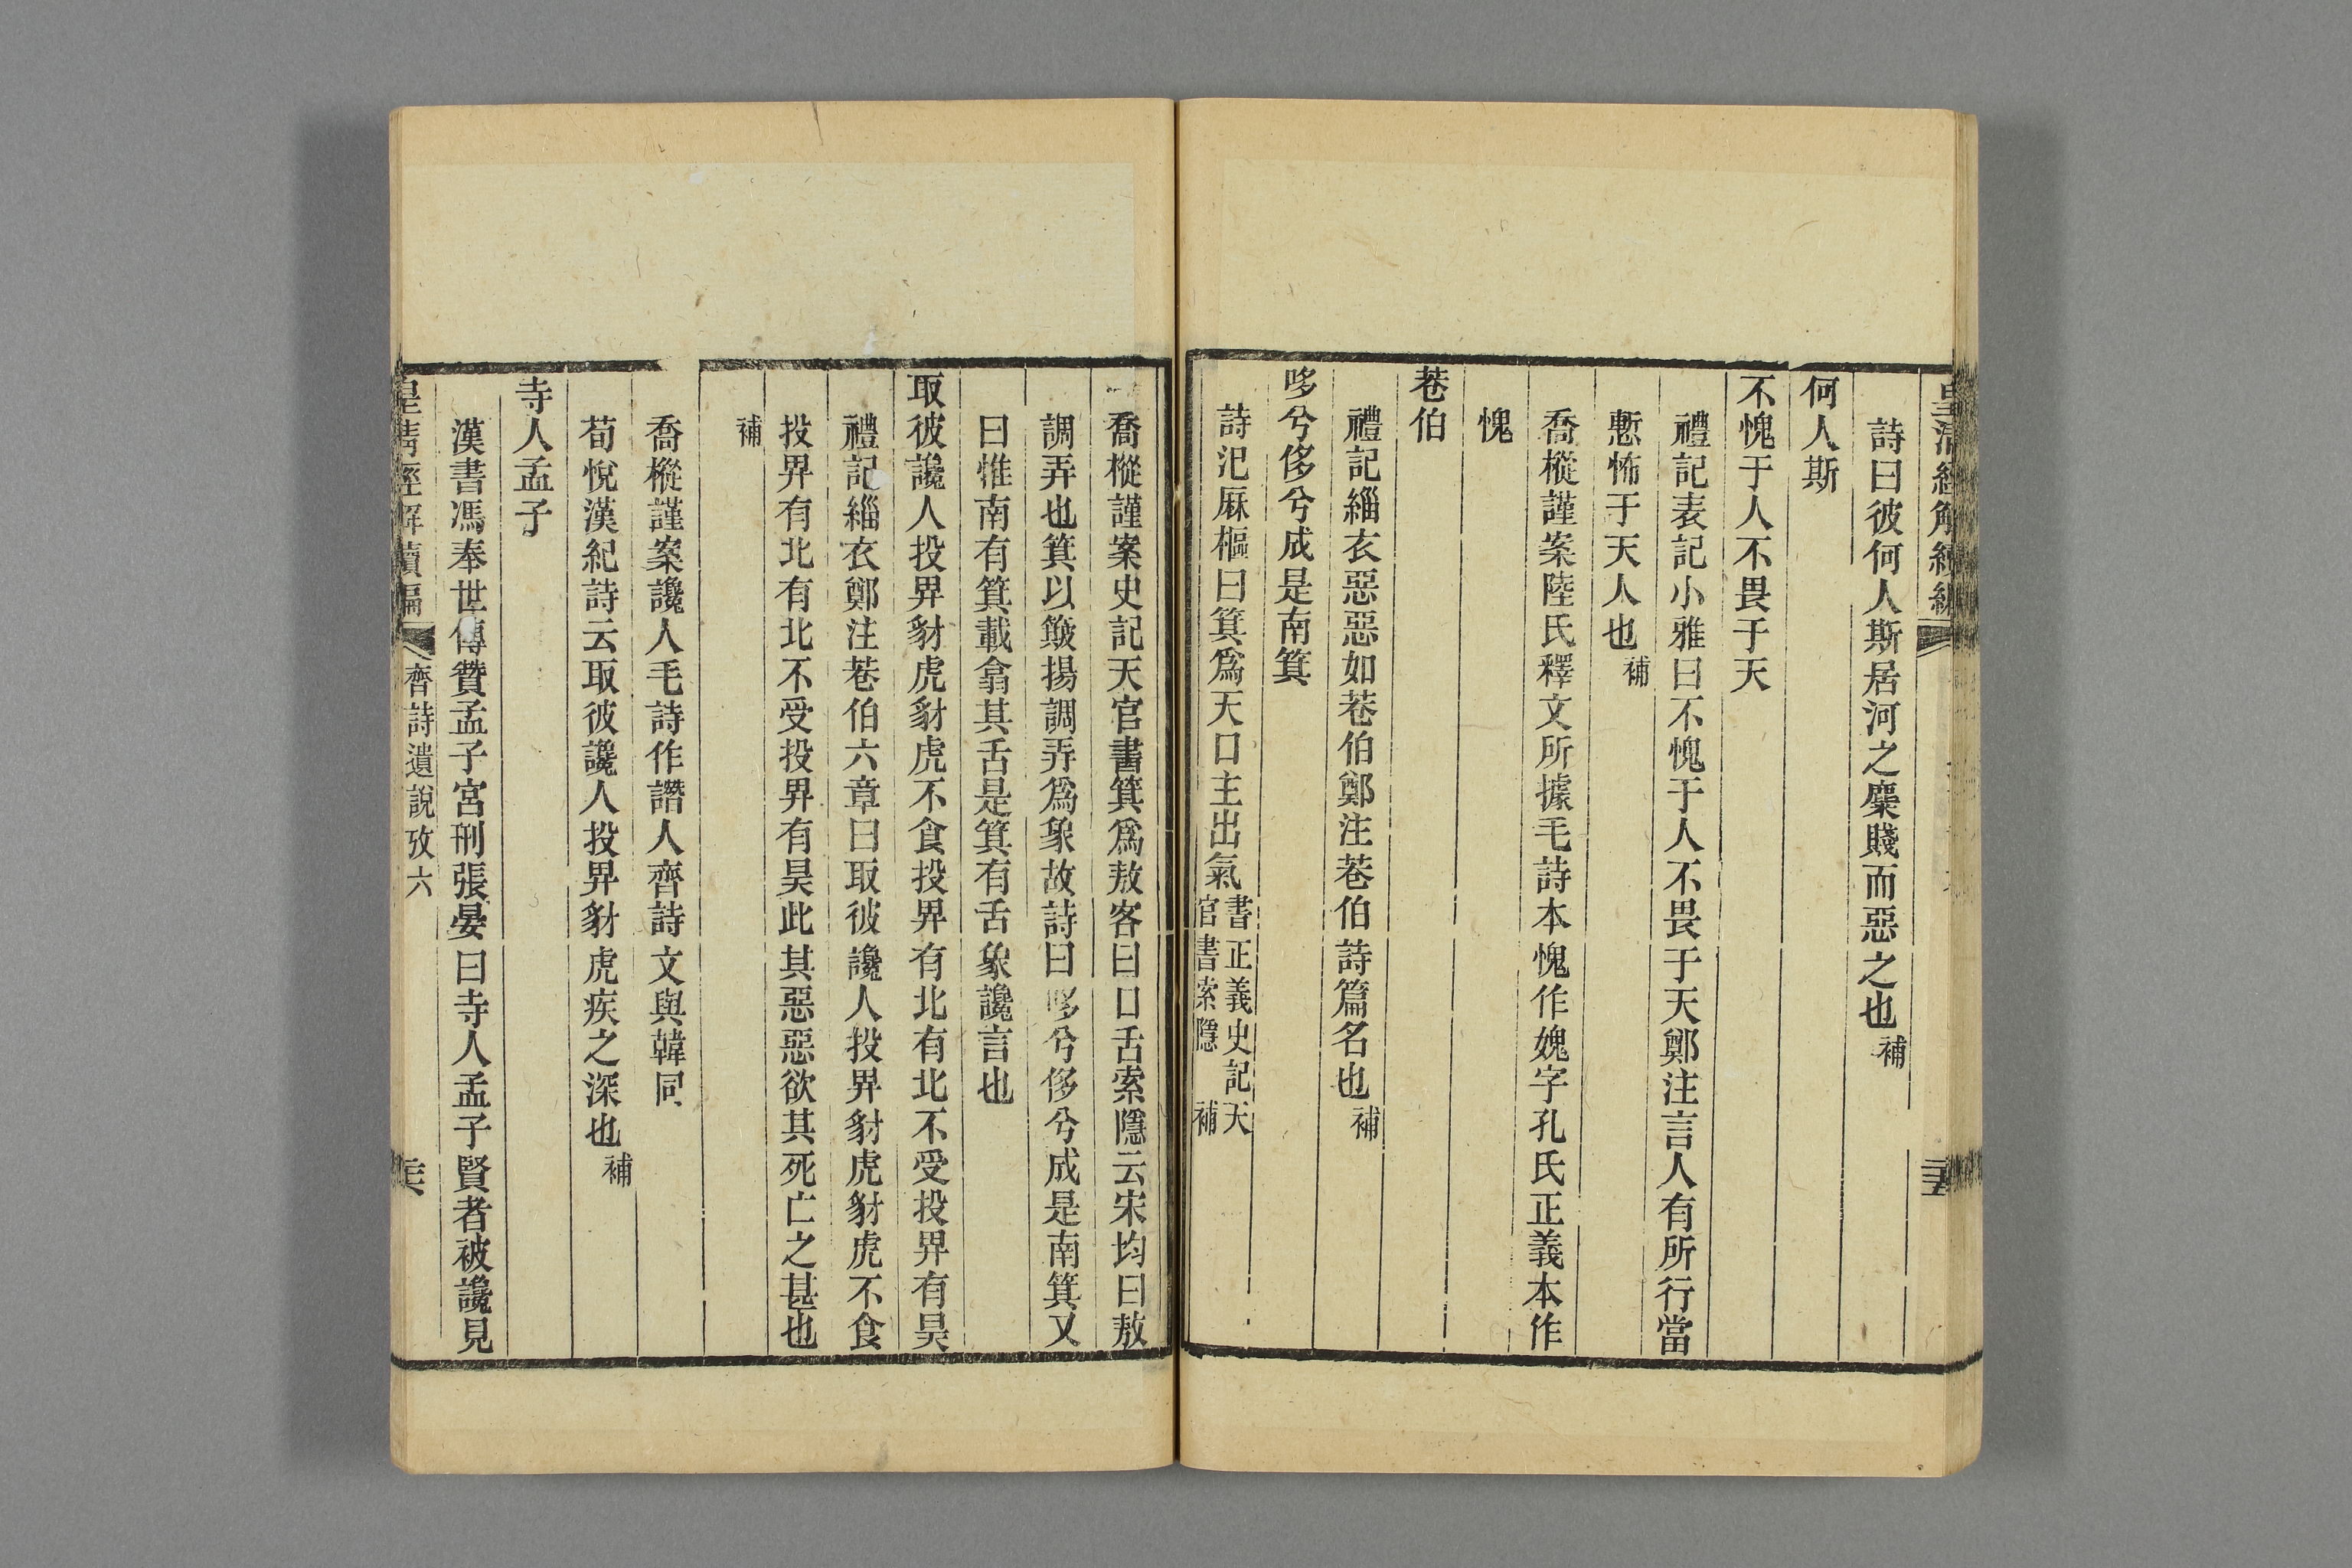 詩曰彼何人斯居河之麋賤而惡之也補
何人斯
不愧于人不畏于天
禮記表記小雅曰不愧于人不畏于天鄭注言人有所行當
慙怖于天人也補
喬樅謹案陸氏釋文所據毛詩本愧作媿字孔氏正義本作
愧
巷伯
禮記緇衣惡惡如巷伯鄭注巷伯詩篇名也補
哆兮侈兮成是南箕
詩汜厤樞曰箕爲天口主出氣
書正義史記天
官書索隱 補
喬樅謹案史記天官書箕爲敖客曰口舌索隱云宋均曰敖
調弄也箕以簸揚調弄爲象故詩曰哆兮侈兮成是南箕又
曰惟南有箕載翕其舌是箕有舌象讒言也
取彼讒人投畀豺虎豺虎不食投畀有北有北不受投畀有昊
禮記緇衣鄭注巷伯六章曰取彼讒人投畀豺虎豺虎不食
投畀有北有北不受投畀有昊此其惡惡欲其死亡之甚也
補
喬樅謹案讒人毛詩作譖人齊詩文與韓同
荀悅漢紀詩云取彼讒人投畀豺虎疾之深也補
寺人孟子
漢書馮奉世傳贊孟子宮刑張晏曰寺人孟子賢者被讒見
皇淸經解續編
齊詩遺說攷六